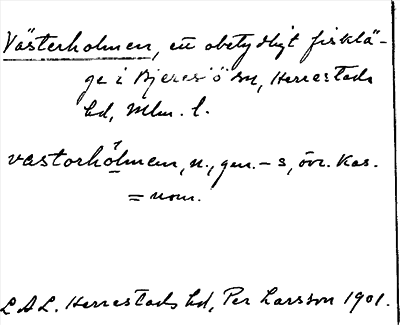 Västerholmen, ett obetydligt fisklä-
ge i Bjeresjö sn, Herrestads
hd, Mlm. l.
vastorhólmen, n., gen. -s, övr. kas.
= nom.
L.A.L. Herrestads hd, Per Larsson 1901.